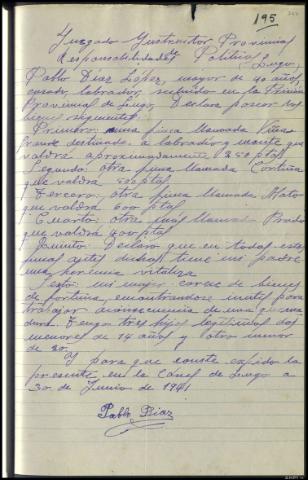 195
Juzgado Instructor Provincial
Responsabilidades Políticas
Lugo
Pablo Diaz López, mayor de 40 años
casado, labrador, recluido en la Prision
Provincial de Lugo, Declara poseer los
bienes siguientes:
Primero: una finca llamada Viña
grande destinada a labradio y monte que
valdra aproximadamente 250 ptas
Segundo: otra finca llamada Cortiña
que valdra ptas
Tercero, otra finca llamada Mato
que valdra 600 ptas
Cuarto: otra mas llamada Prado
que valdra 400 ptas
Quinto: Declaro que en todas estas
fincas antes dichas tiene mi padre
una vitalicia
Sesto: mi mujer carece de bienes
de fortuna, encontrandose inutil para
trabajar a consecuencia de una quema
dura. Tengo tres hijos legitimos dos
menores de 14 años y otro menor
de 20.
Y para que conste expido la
presente en la Carcel de Lugo a
30 de Junio de 1941
Pablo Diaz